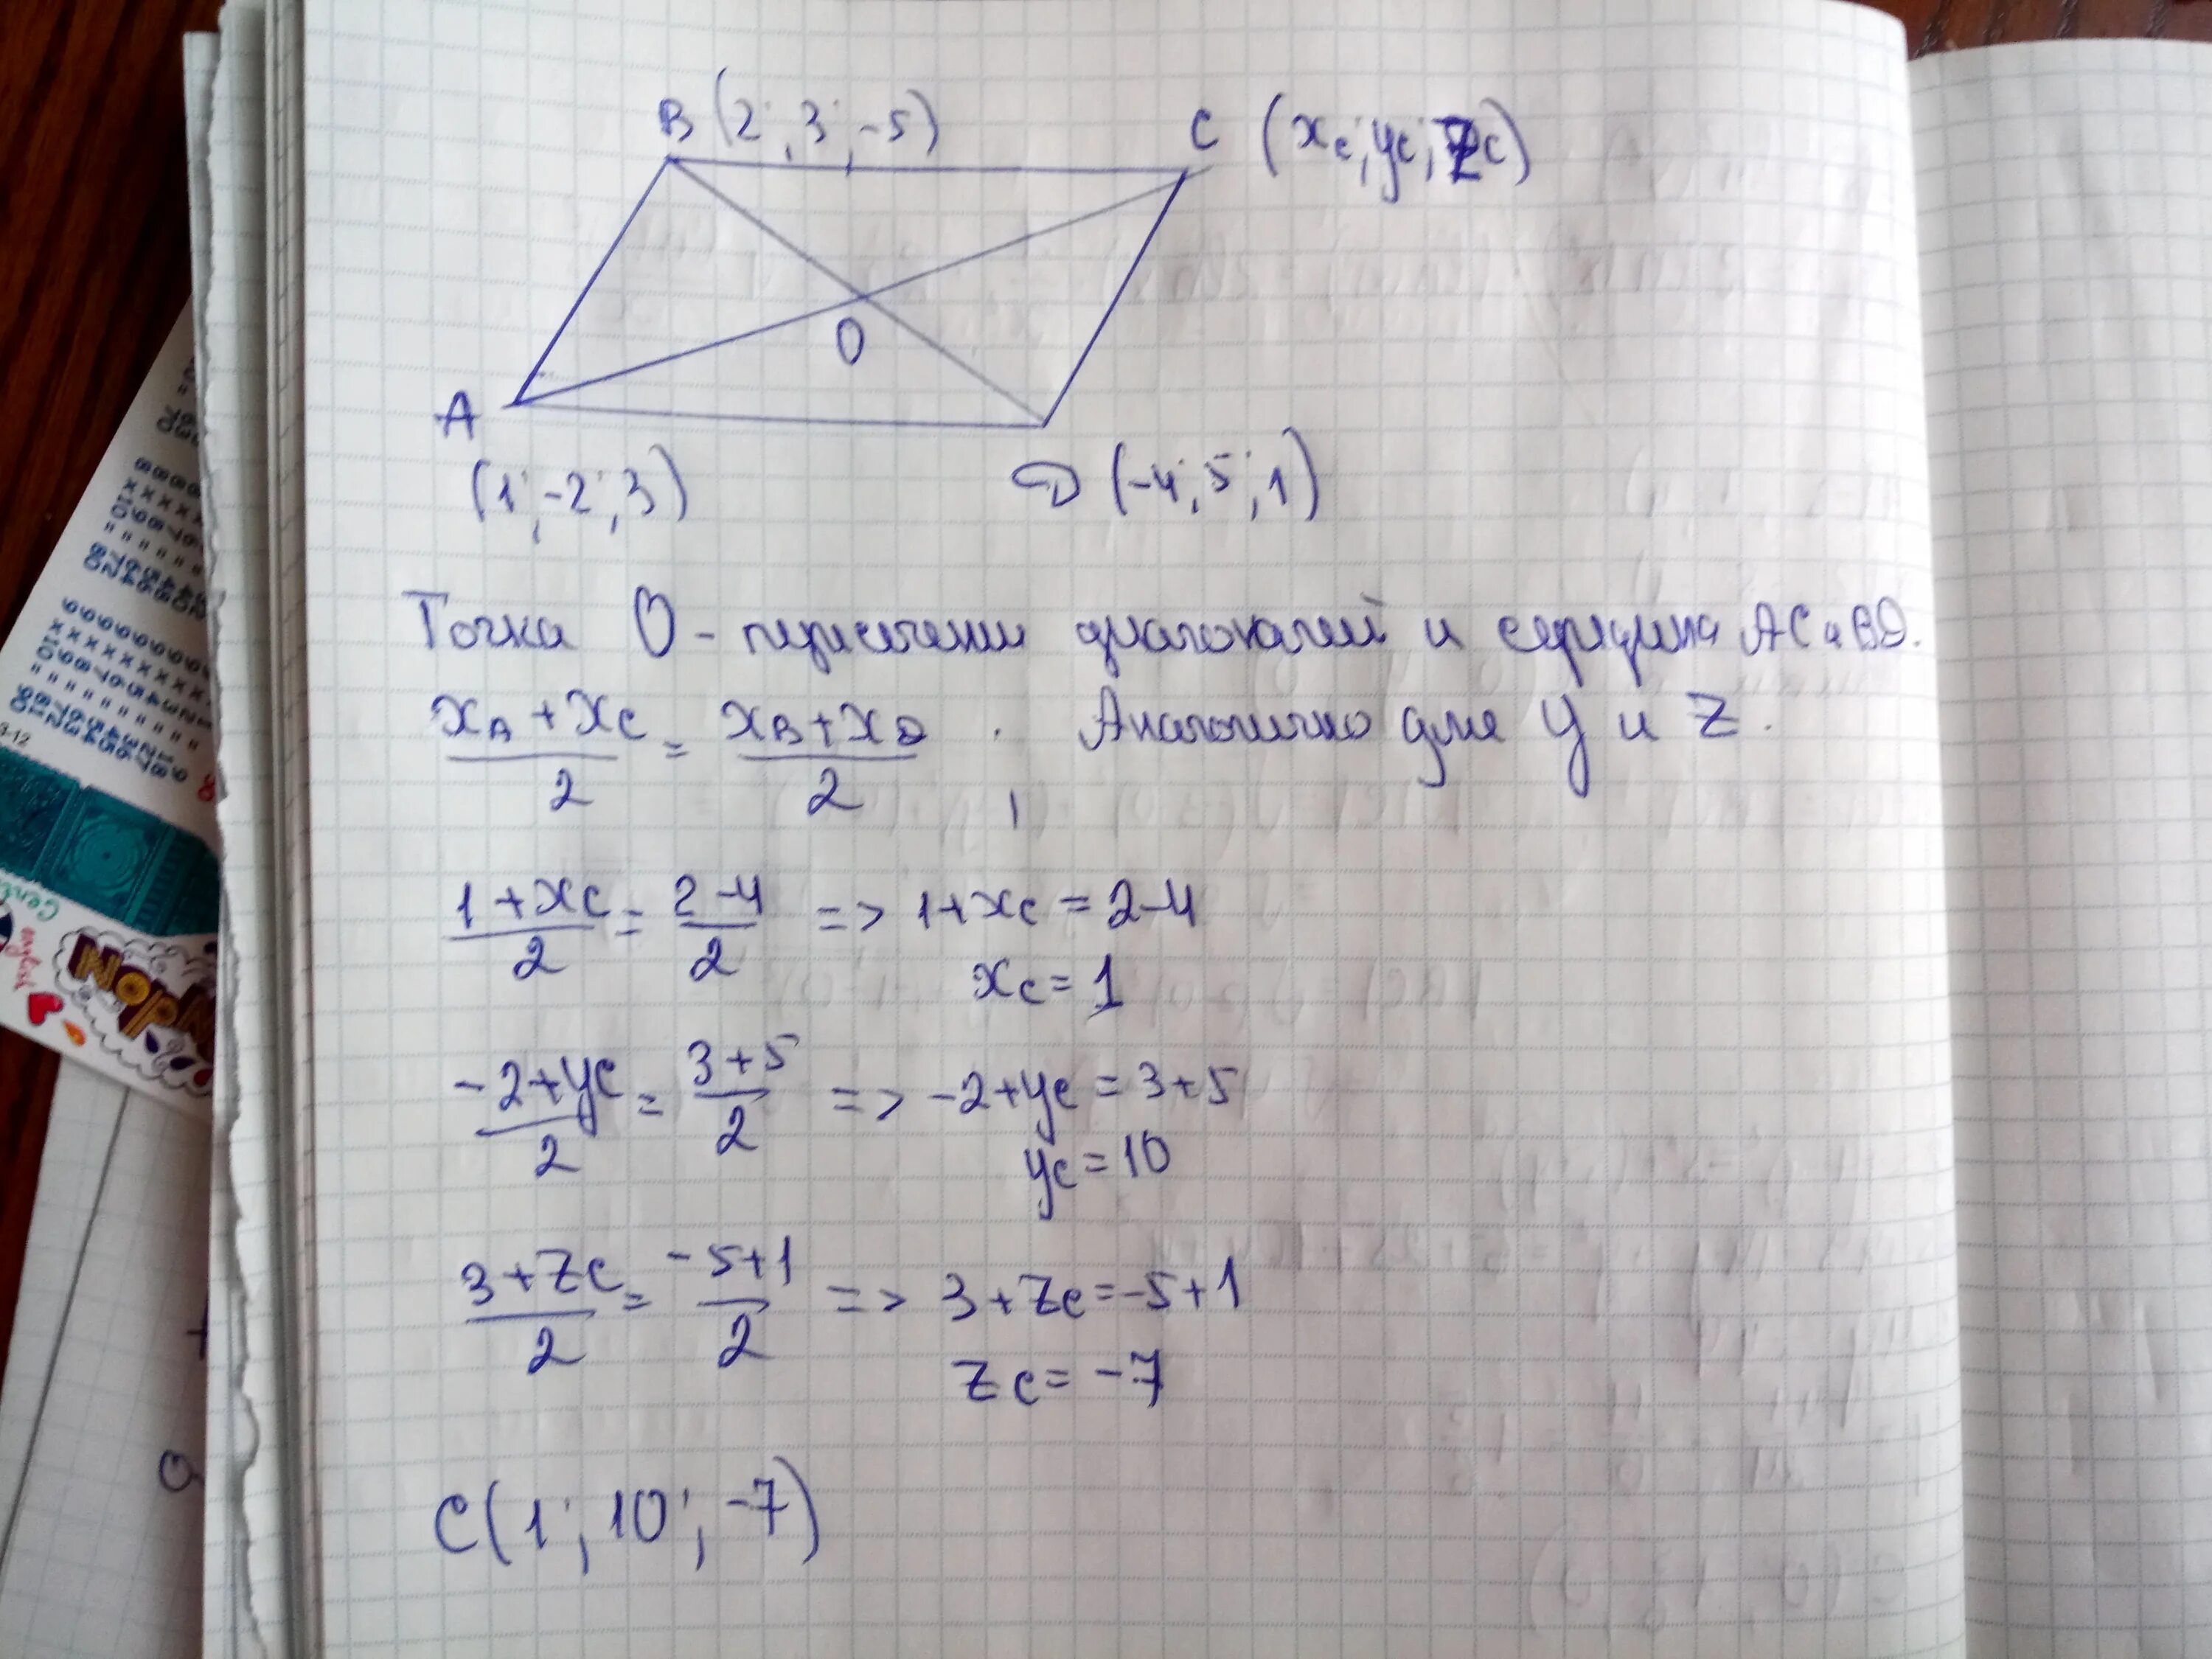 B (2; 3; -5)
C (xc; yc; zc)
O
A
(1; -2; 3)
D (-4; 5; 1)
Точка O - пересечении диагоналей и середина AC и BD.
(xA + xC)/2 = (xB + xD)/2 . Аналогично для y и z.
(1 + xc)/2 = (2 - 4)/2 => 1 + xc = 2 - 4
xc = 1
(-2 + yc)/2 = (3 + 5)/2 => -2 + yc = 3 + 5
yc = 10
(3 + zc)/2 = (-5 + 1)/2 => 3 + zc = -5 + 1
zc = -7
C(1; 10; -7)